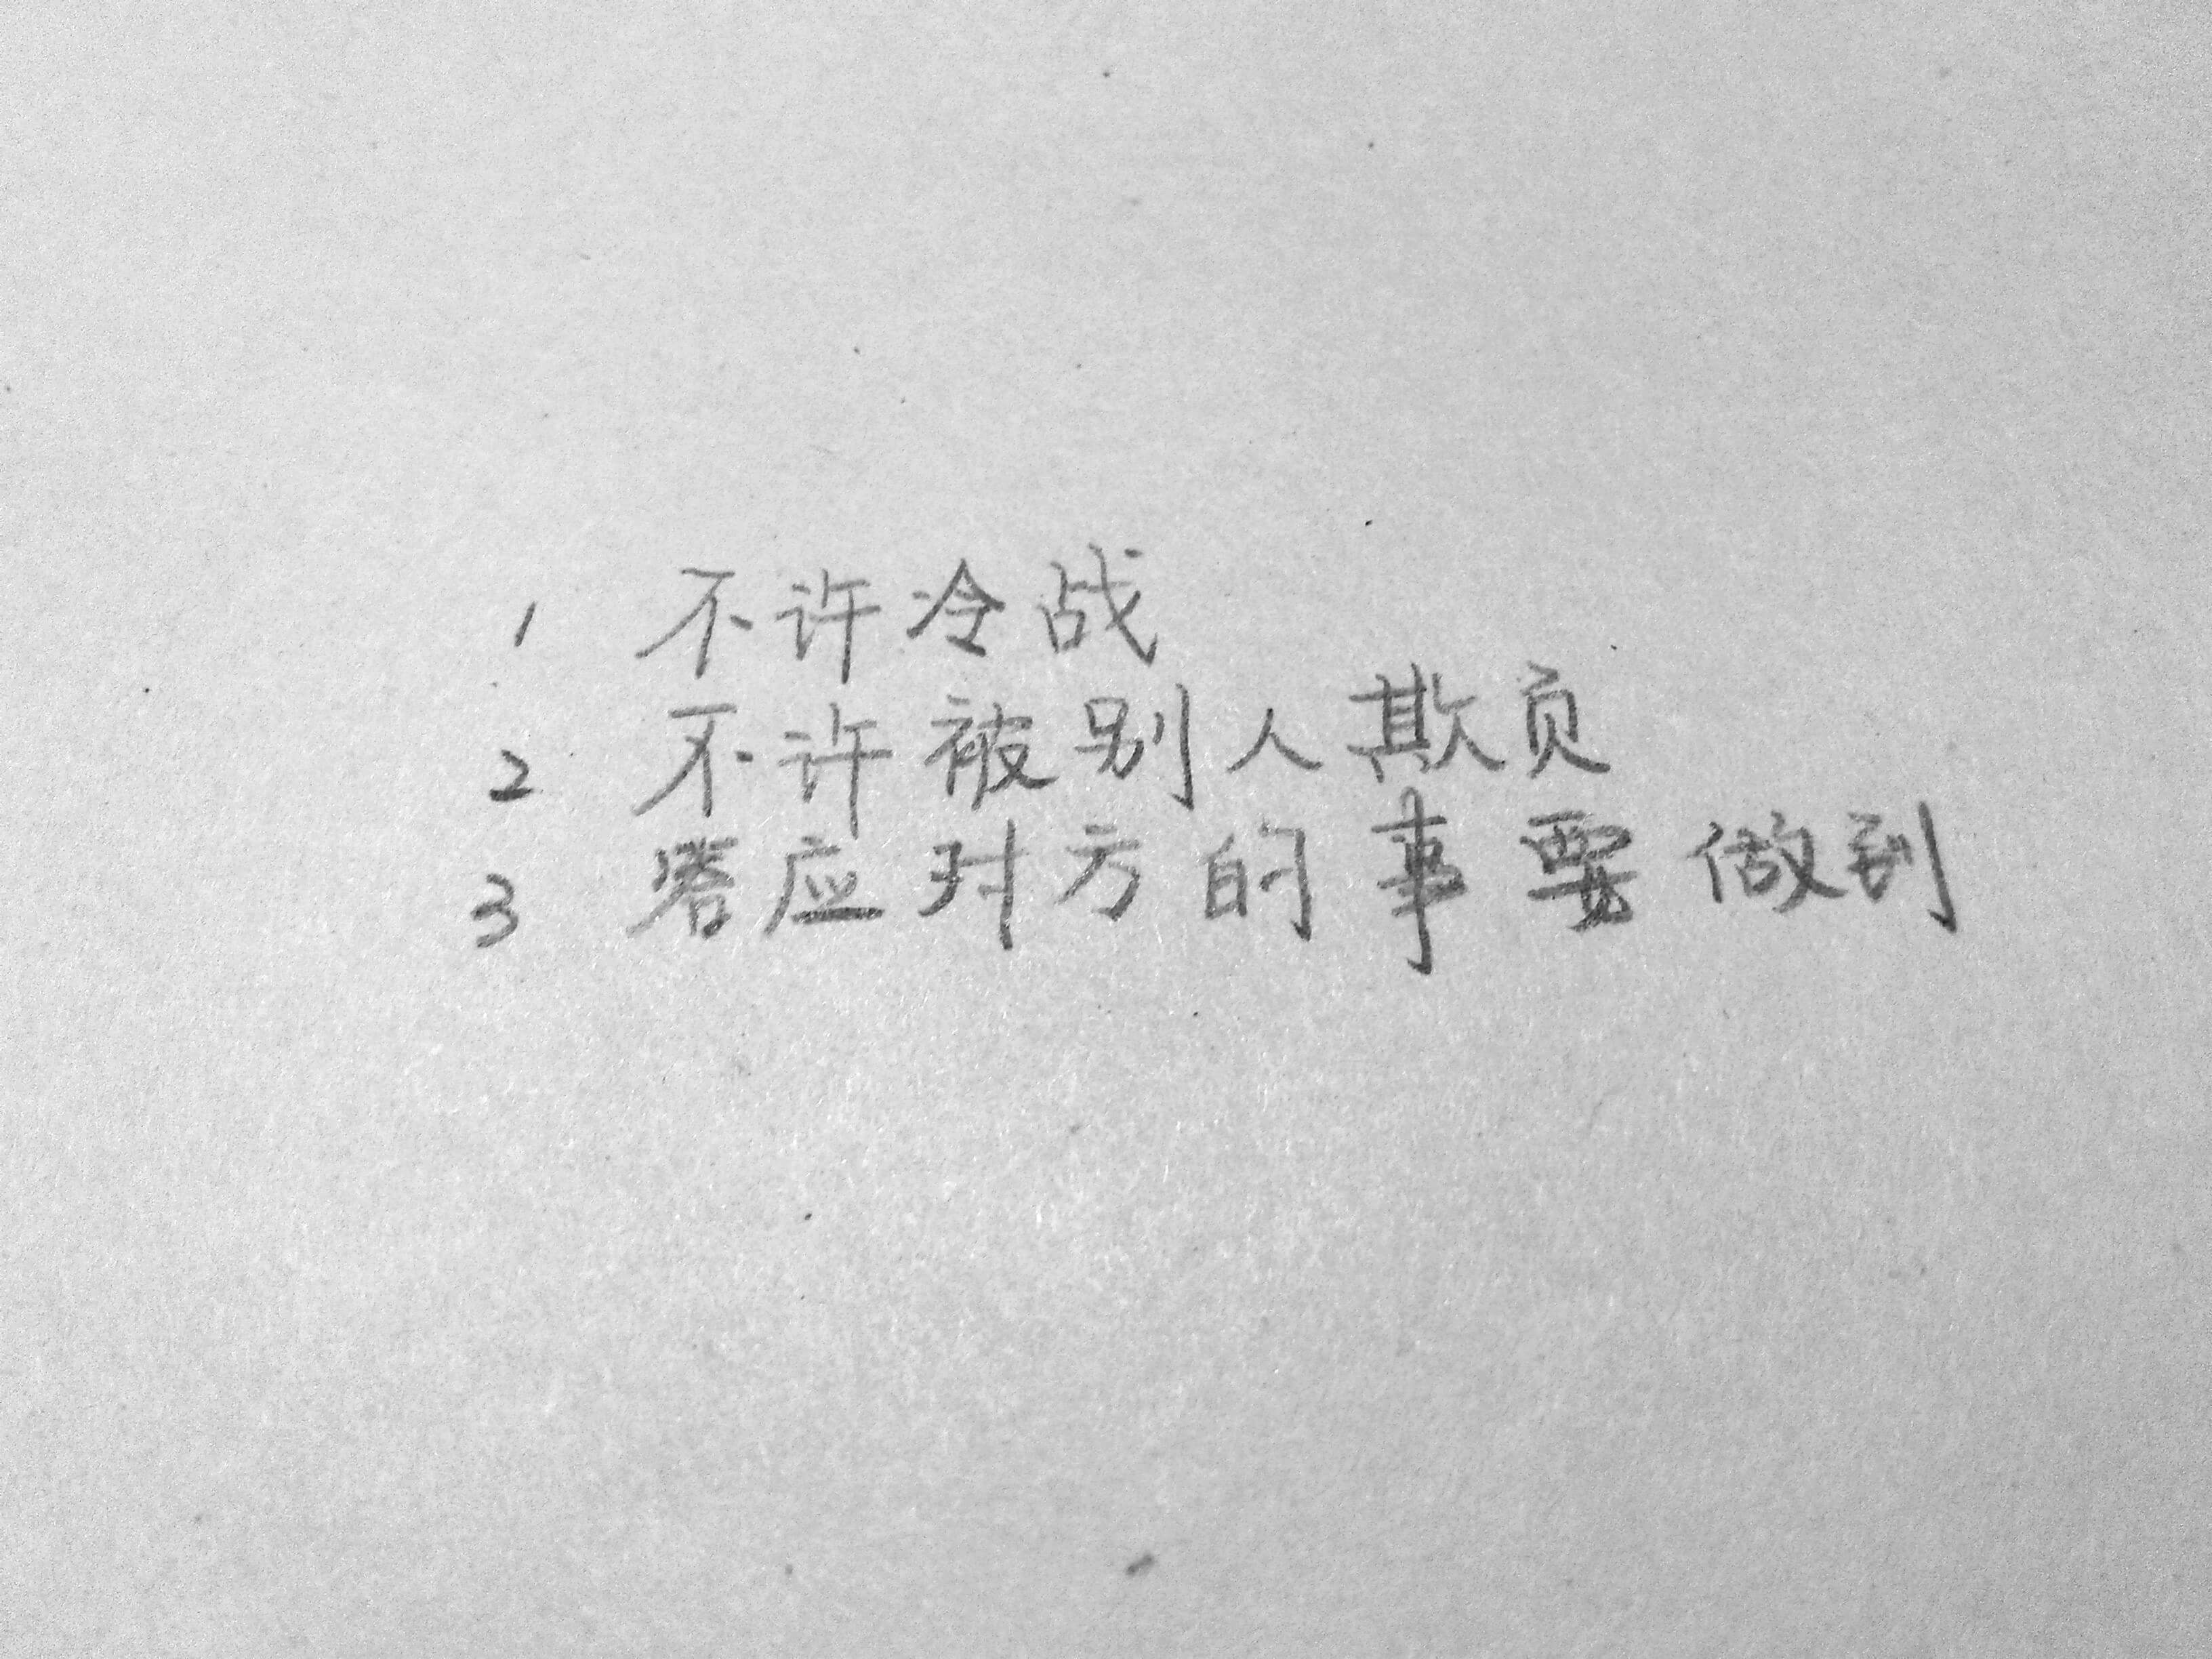 1 不许冷战
2 不许被别人欺负
3 答应对方的事要做到